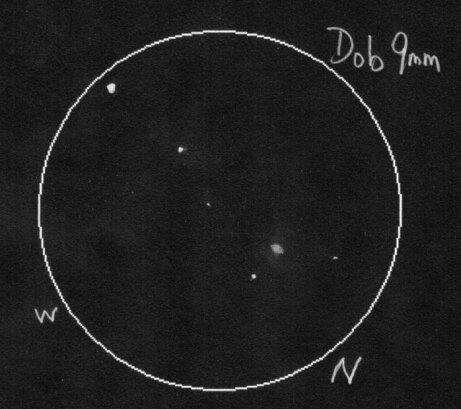 Dob 9mm
W
N